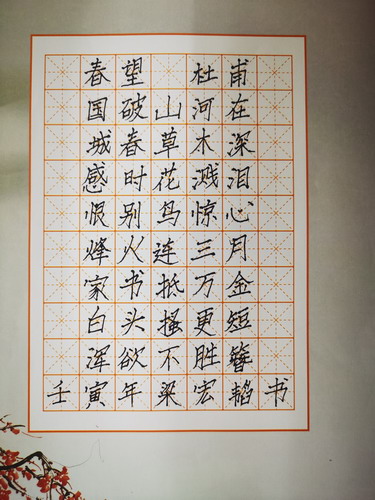 春望 杜甫
国破山河在
城春草木深
感时花溅泪
恨别鸟惊心
烽火连三月
家书抵万金
白头搔更短
浑欲不胜簪
壬寅年梁宏韬书